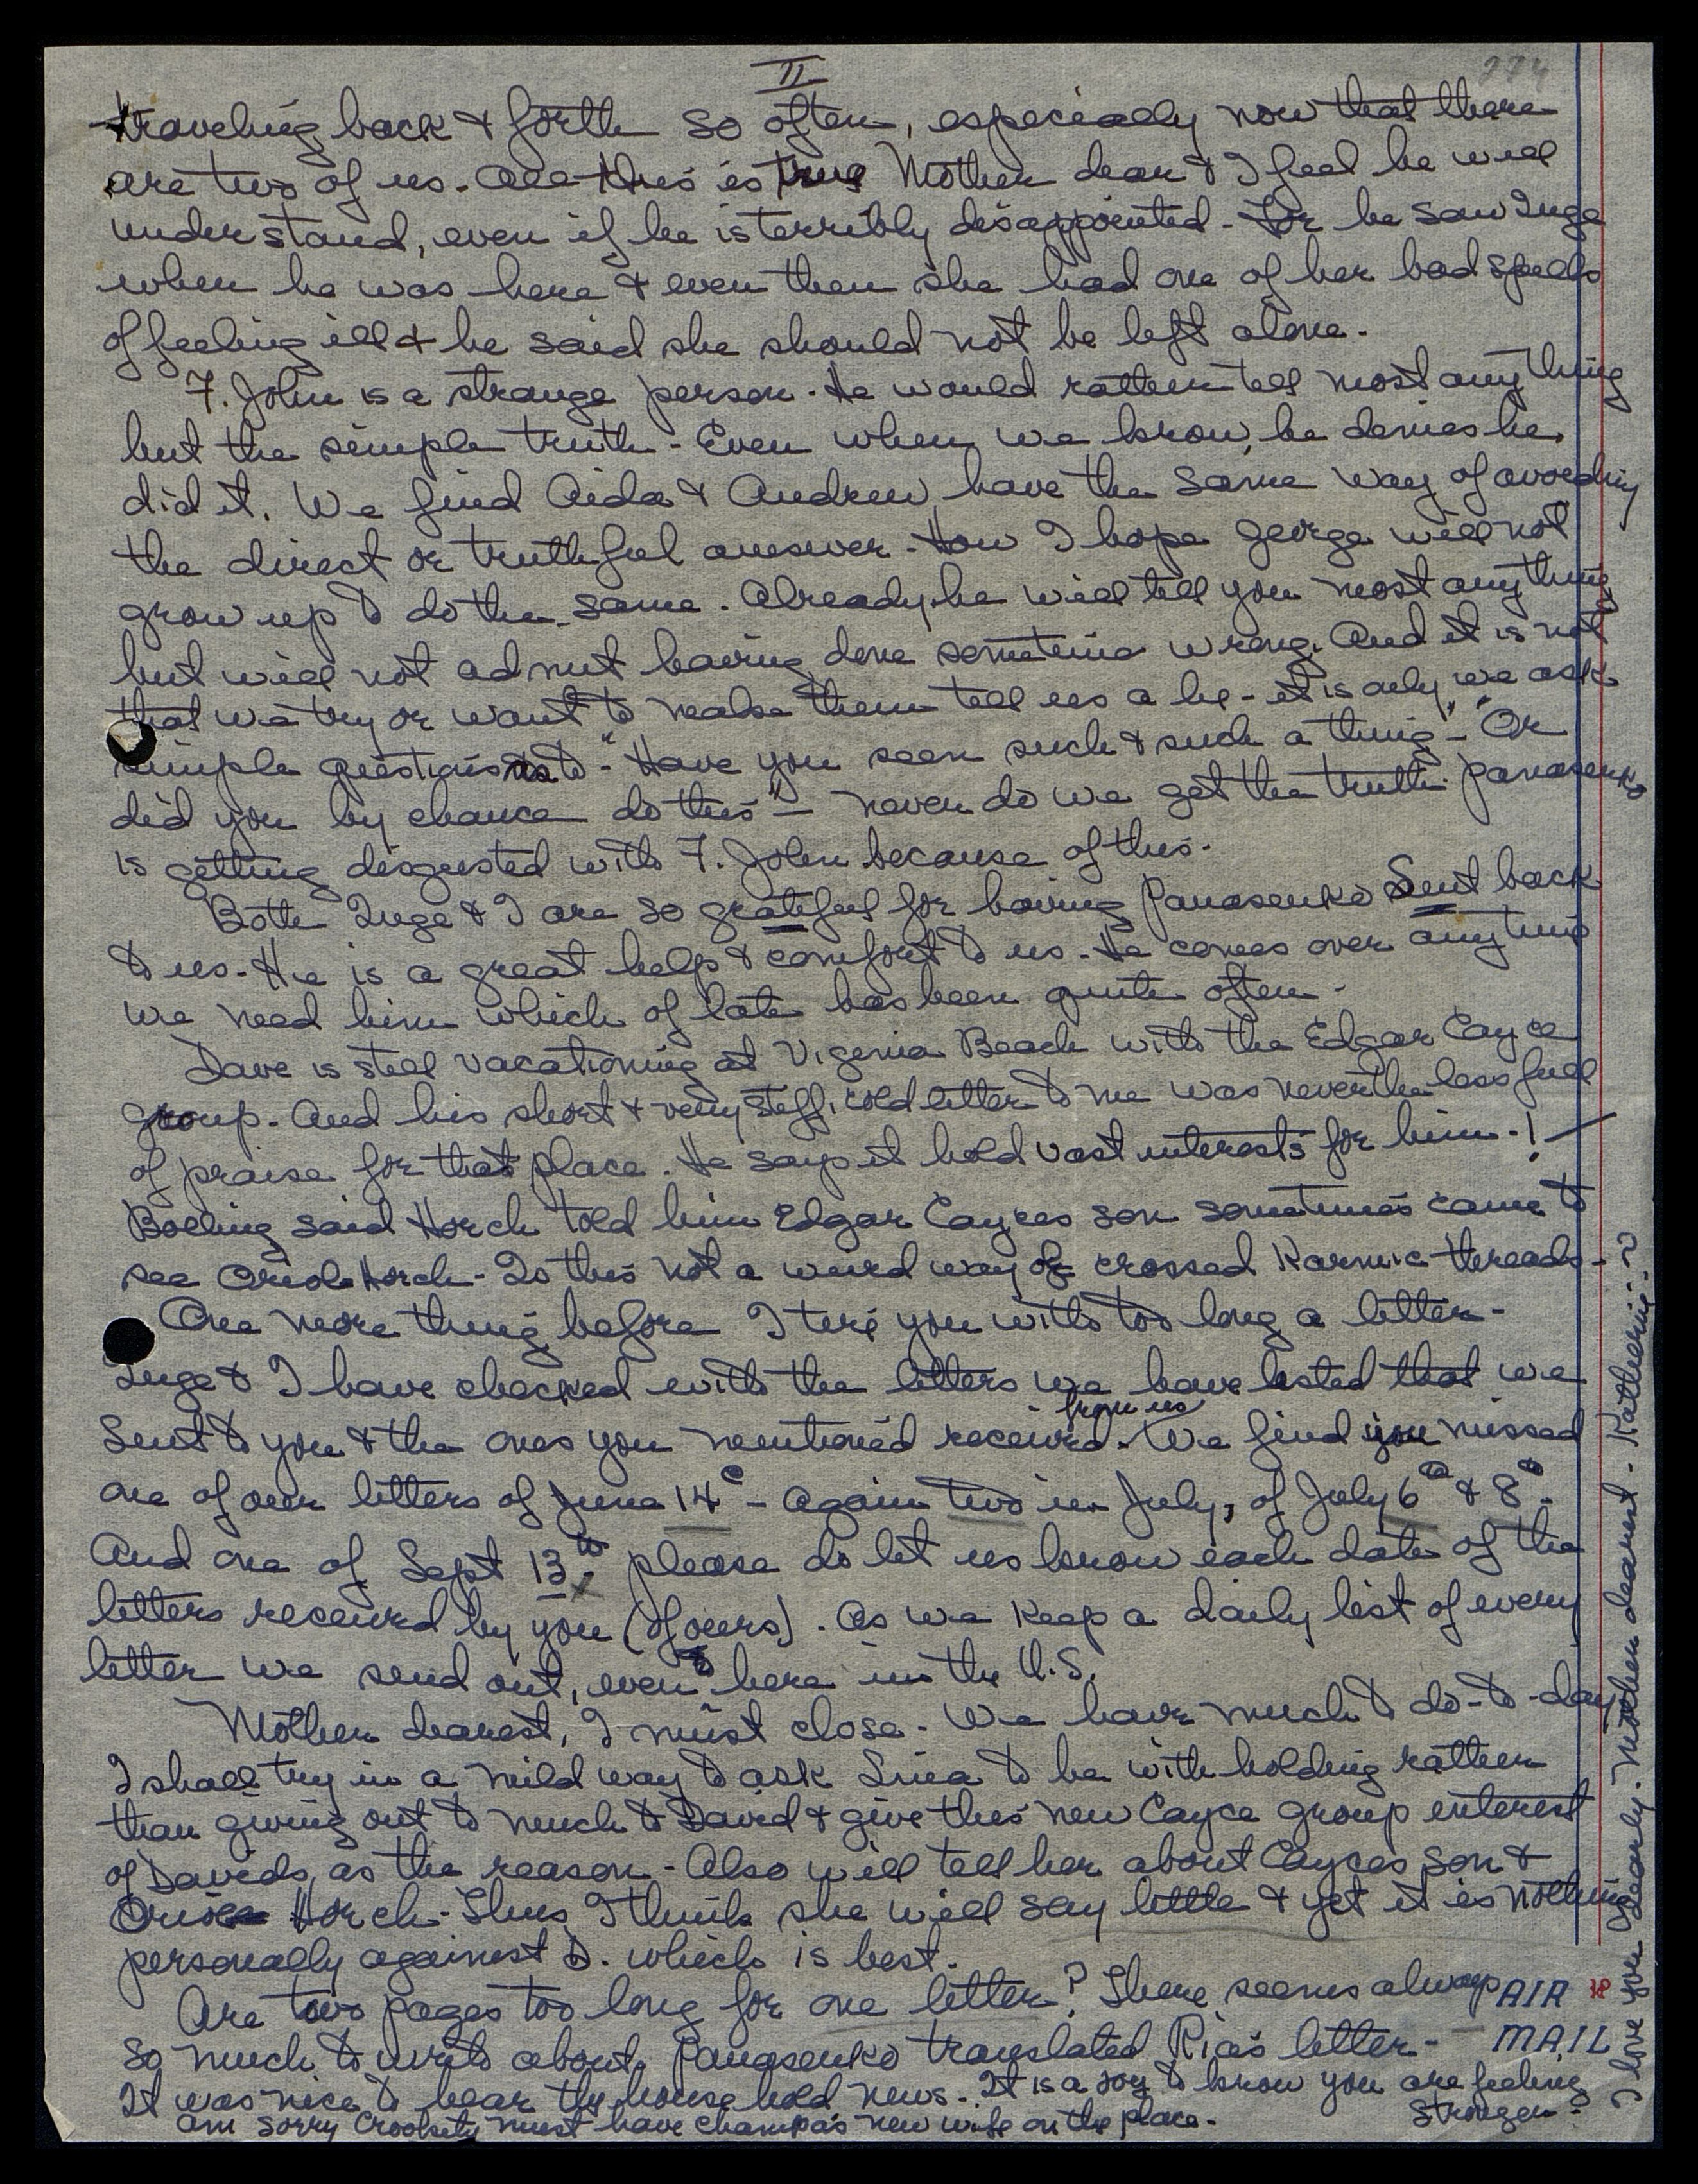 II
274
traveling back & forth so often, especially now that there
are two of us. All this is true Mother dear & I feel he will
understand, even if he is terribly disappointed - For he saw Inge
when he was here & even then she had one of her bad spells
of feeling ill & he said she should not be left alone.
F. John is a strange person. He would rather tell most anything
but the simple truth - Even when we know, he denies he
did it. We find Aida & Andrew have the same way of avoiding
the direct or truthful answer. How I hope George will not
grow up to do the same. Already he will tell you most anything
but will not admit having done sometime wrong. And it is not
that we try or want to make them tell us a lie - it is only we ask
simple questions as to - "Have you seen such & such a thing" - "Or
did you by chance do this" - never do we get the truth. Panasenko
is getting disgusted with F. John because of this.
Both Inge & I are so grateful for having Panasenko Sent back
to us. He is a great help & comfort to us. He comes over any time
we need him which of late has been quite often.
Dave is still vacationing at Vigenia Beach with the Edgar Cayce
group. And his short & very stiff, cold letter to me was nevertheless full
of praise for that place. He says it hold vast interests for him - !
Bolling said Horch told him Edgar Cayces son sometimes came to
see Oriole Horch - Is this not a weird way of crossed Karmic threads -
One more thing before I tire you with too long a letter -
Inge & I have checked with the letters we have listed that we
from us
Sent to you & the ones you mentioned received. We find you missed
one of our letters of June 14th - Again two in July, of July 6th & 8th.
And one of Sept 13th. please do let us know each date of the
letters received by you (of ours). As we keep a daily list of every
letter we send out, even to here in the U.S.
Mother dearest, I must close - We have much to do - to - day
I shall try in a mild way to ask Lina to be with holding rather
than giving out to much to David & give this new Cayce group interest
of Davids, as the reason - Also will tell her about Cayces son &
Oriole Horch - Thus I think she will say little & yet it is nothing
personally against D. which is best.
Are two pages too long for one letter? There seems always
so much to write about. Panasenko translated Rias letter -
It was nice to hear the house hold news. It is a joy to know you are feeling
stronger.
am sorry Crooksity must have Champa's new wife on the place.
AIR
MAIL
I love you dearly. Mother dearest - Katherine.